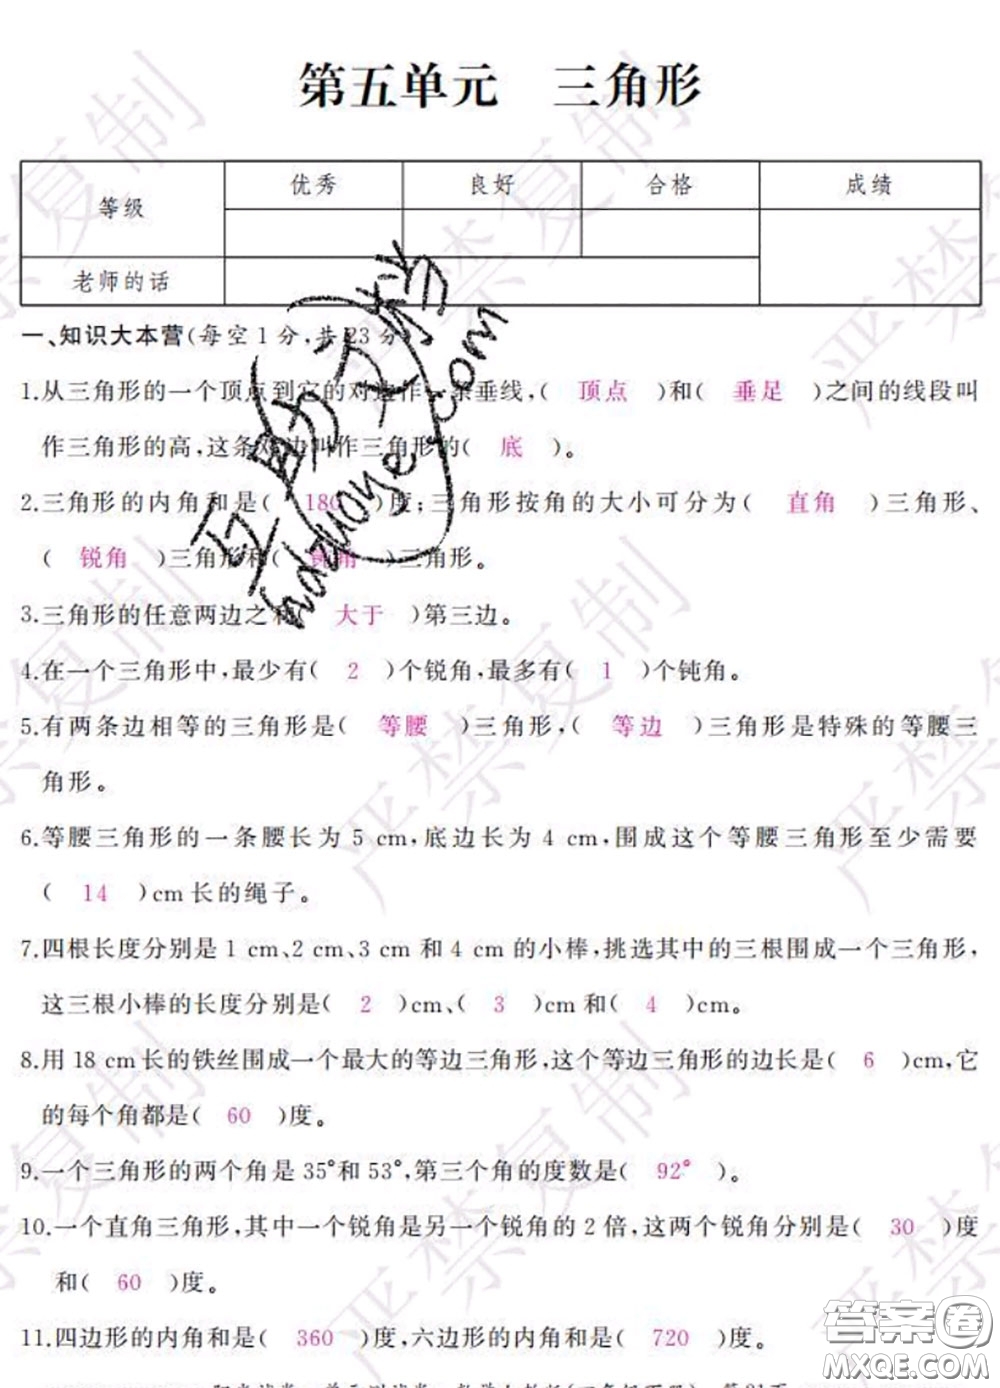 第五单元 三角形
等级 优秀 良好 合格 成绩
老师的话
一、知识大本营(每空1分,共23分)
1.从三角形的一个顶点到它的对边作一条垂线,( 顶点 )和( 垂足 )之间的线段叫
作三角形的高,这条对边叫作三角形的( 底 )。
2.三角形的内角和是( 180 )度;三角形按角的大小可分为( 直角 )三角形、
( 锐角 )三角形和( 钝角 )三角形。
3.三角形的任意两边之和( 大于 )第三边。
4.在一个三角形中,最少有( 2 )个锐角,最多有( 1 )个钝角。
5.有两条边相等的三角形是( 等腰 )三角形,( 等边 )三角形是特殊的等腰三
角形。
6.等腰三角形的一条腰长为 5 cm,底边长为 4 cm,围成这个等腰三角形至少需要
( 14 )cm长的绳子。
7.四根长度分别是 1 cm、2 cm、3 cm 和 4 cm 的小棒,挑选其中的三根围成一个三角形,
这三根小棒的长度分别是( 2 )cm、( 3 )cm和( 4 )cm。
8.用 18 cm 长的铁丝围成一个最大的等边三角形,这个等边三角形的边长是( 6 )cm,它
的每个角都是( 60 )度。
9.一个三角形的两个角是35°和53°,第三个角的度数是( 92° )。
10.一个直角三角形,其中一个锐角是另一个锐角的 2 倍,这两个锐角分别是( 30 )度
和( 60 )度。
11.四边形的内角和是( 360 )度,六边形的内角和是( 720 )度。
严禁复制
互助文档
hdzuoye.com
答案圈
MXQE.COM